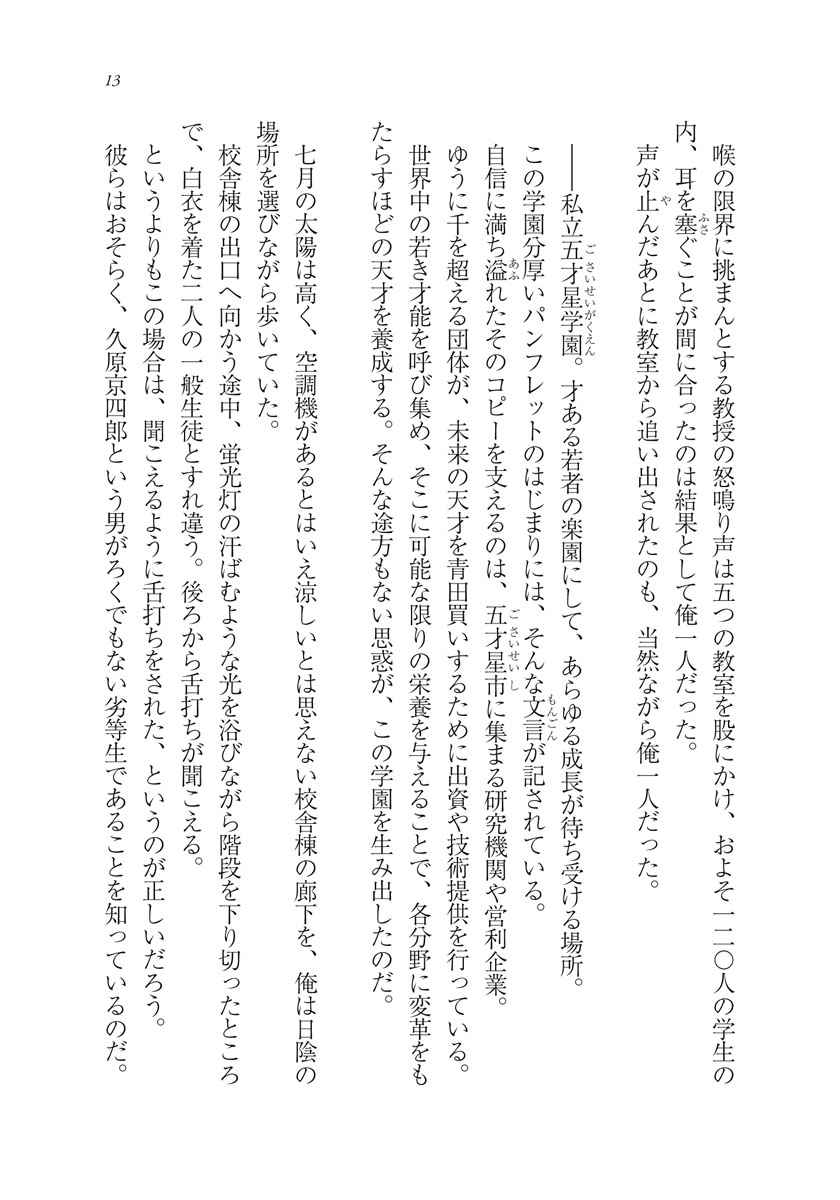 13
喉の限界に挑まんとする教授の怒鳴り声は五つの教室を股にかけ、およそ一二〇人の学生の
内、耳を塞ぐことが間に合ったのは結果として俺一人だった。
声が止んだあとに教室から追い出されたのも、当然ながら俺一人だった。
――私立五才星学園。才ある若者の楽園にして、あらゆる成長が待ち受ける場所。
この学園分厚いパンフレットのはじまりには、そんな文言が記されている。
自信に満ち溢れたそのコピーを支えるのは、五才星市に集まる研究機関や営利企業。
ゆうに千を超える団体が、未来の天才を青田買いするために出資や技術提供を行っている。
世界中の若き才能を呼び集め、そこに可能な限りの栄養を与えることで、各分野に変革をも
たらすほどの天才を養成する。そんな途方もない思惑が、この学園を生み出したのだ。
七月の太陽は高く、空調機があるとはいえ涼しいとは思えない校舎棟の廊下を、俺は日陰の
場所を選びながら歩いていた。
校舎棟の出口へ向かう途中、蛍光灯の汗ばむような光を浴びながら階段を下り切ったところ
で、白衣を着た二人の一般生徒とすれ違う。後ろから舌打ちが聞こえる。
というよりもこの場合は、聞こえるように舌打ちをされた、というのが正しいだろう。
彼らはおそらく、久原京四郎という男がろくでもない劣等生であることを知っているのだ。